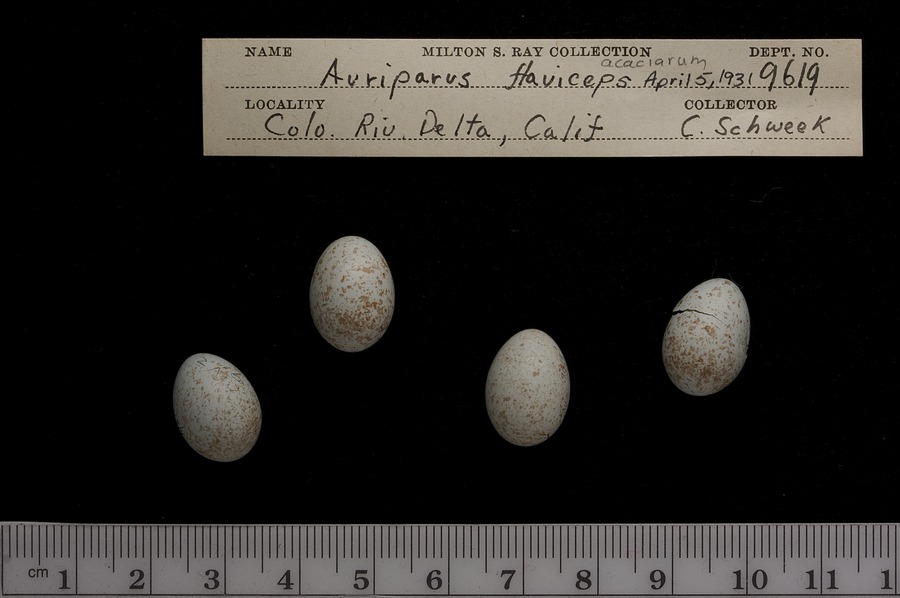 NAME MILTON S. RAY COLLECTION DEPT. NO.
acaciarum
Auriparus flaviceps April 5, 1931 9619
LOCALITY COLLECTOR
Colo. Riv. Delta, Calif C. Schweek
cm 1 2 3 4 5 6 7 8 9 10 11 1